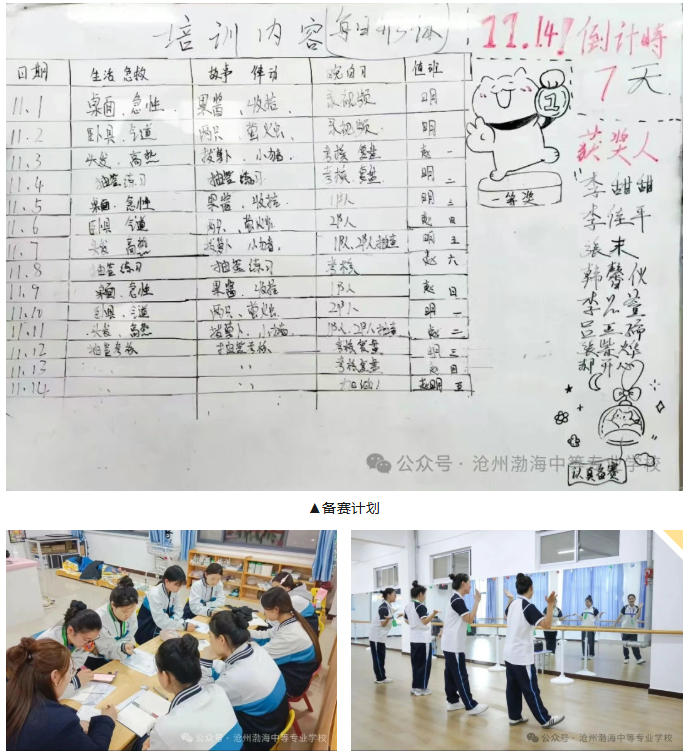 培训内容（每日形体）
11.14! 倒计时
7天
日期 生活 急救 故事 律动 晚自习 值班
11.1 桌面、急性 果酱、收拾 录视频 明
11.2 卧具、气道 两只、萤火虫 录视频 明
11.3 头发、高热 拔萝卜、小猪 考核 复盘 赵一
11.4 抽签练习 抽签练习 考核 复盘 明二
11.5 桌面、急性 果酱、收拾 1P人 明三
11.6 卧具、气道 两只、萤火虫 2P人 赵四
11.7 头发、高热 拔萝卜 小猪 1P人、2P人抽查 明五
11.8 抽签练习 抽签练习 考核 赵六
11.9 桌面、急性 果酱、收拾 1P人 赵日
11.10 卧具、气道 两只、萤火虫 2P人 明一
11.11 头发、高热 拔萝卜、小猪 1P人、2P人抽查 赵二
11.12 抽签考核 抽签考核 考核复盘 明三
11.13 、、 、、 考核复盘 赵四
11.14 、、 、、 赵明 五
1
一等奖
获奖人
李甜甜
李佳平
张末
韩馨
认真备赛
公众号·沧州渤海中等专业学校
▲备赛计划
公众号·沧州渤海中等专业学校
公众号·沧州渤海中等专业学校